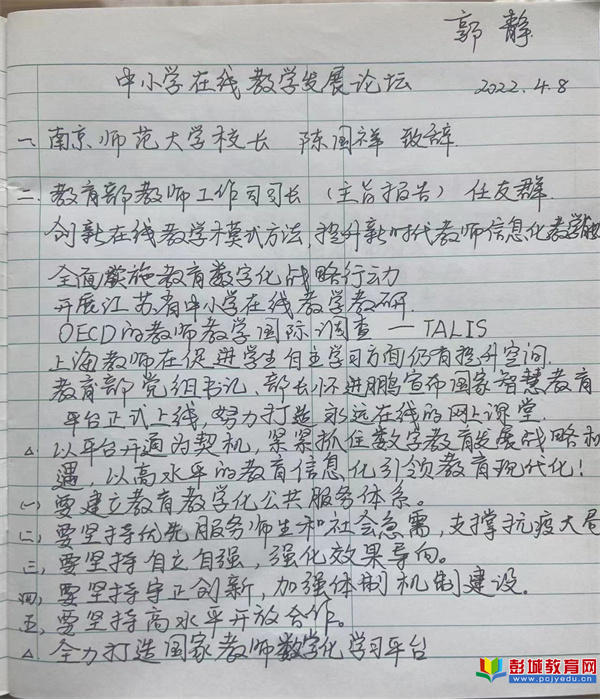 郭静
中小学在线教学发展论坛 2022.4.8
一、南京师范大学校长 陈国祥 致辞
二、教育部教师工作司司长（主旨报告）任友群
创新在线教学模式方法，提升新时代教师信息化教学能
全面实施教育数字化战略行动
开展江苏省中小学在线教学教研.
OECD的教师教学国际调查 — TALIS
上海教师在促进学生自主学习方面仍有提升空间.
教育部党组书记、部长怀进鹏宣布国家智慧教育
平台正式上线，努力打造永远在线的网上课堂.
△ 以平台开通为契机，紧紧抓住数字教育发展战略机
遇，以高水平的教育信息化引领教育现代化！
(一) 要建立教育数字化公共服务体系。
(二) 要坚持优先服务师生和社会急需，支撑抗疫大局
三，要坚持自立自强，强化效果导向。
四，要坚持守正创新，加强体制机制建设.
五，要坚持高水平开放合作。
△ 全力打造国家教师数字化学习平台
彭城教育网
www.pcjyedu.cn